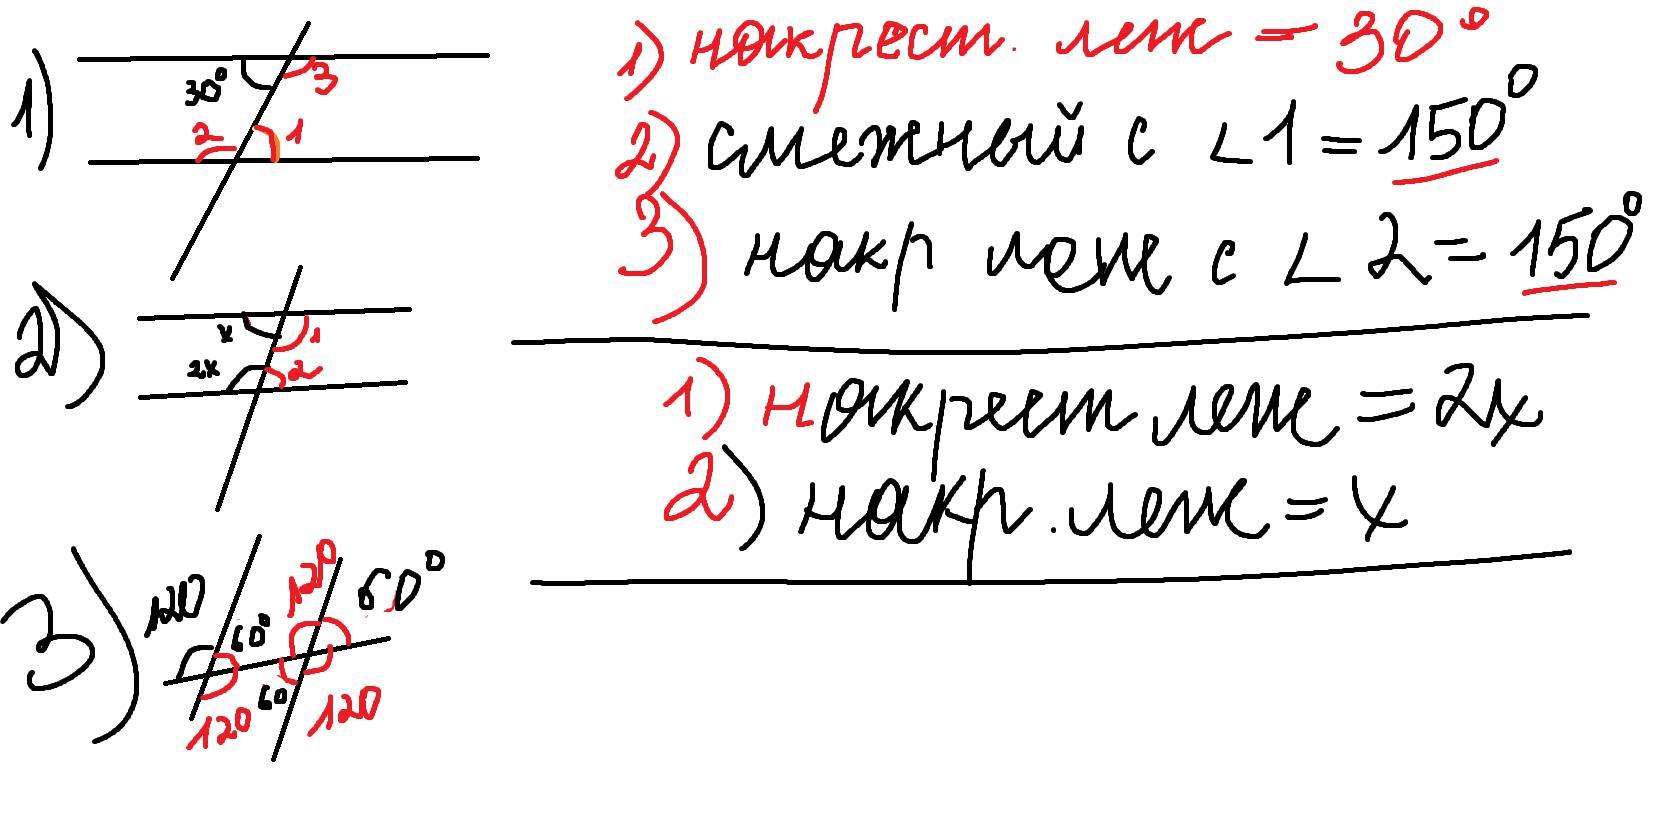 1)
30°
3
2
1
2)
x
1
2x
2
3)
120
60°
120
60°
120
60
120
1) накрест. леж = 30°
2) смежный с ∠1 = 150°
3) накр леж с ∠2 = 150°
1) накрест леж = 2x
2) накр. леж = x